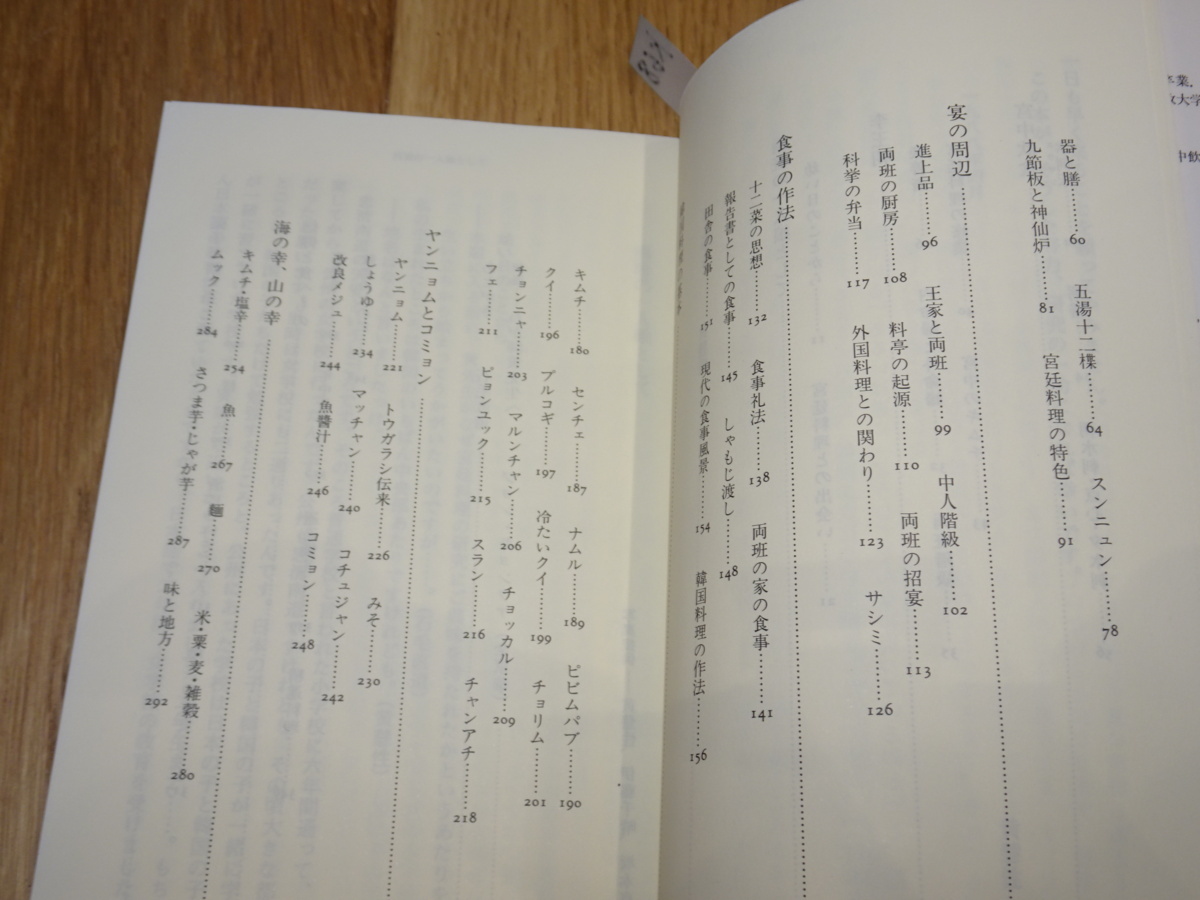 器と膳………60　五湯十二楪………64　スンニュン………78
九節板と神仙炉………81　宮廷料理の特色………91
宴の周辺………
進上品………96　王家と両班………99　中人階級………102
両班の厨房………108　料亭の起源………110　両班の招宴………113
科挙の弁当………117　外国料理との関わり………123　サシミ………126
食事の作法………
十二菜の思想………132　食事礼法………138　両班の家の食事………141
報告書としての食事………145　しゃもじ渡し………148
田舎の食事………151　現代の食事風景………154　韓国料理の作法………156
キムチ………180　センチェ………187　ナムル………189　ビビムパプ………190
クイ………196　プルコギ………197　冷たいクイ………199　チョリム………201
チョンニャ………203　マルンチャン………206　チョッカル………209
フェ………211　ピョンユック………215　スラン………216　チャンアチ………218
ヤンニョムとコミョン………
ヤンニョム………221　トウガラシ伝来………226　みそ………230
しょうゆ………234　マッチャン………240　コチュジャン………242
改良メジュ………244　魚醬汁………246　コミョン………248
海の幸、山の幸………
キムチ・塩辛………254　魚………267　麺………270　米・粟・麦・雑穀………280
ムック………284　さつま芋・じゃが芋………287　味と地方………292